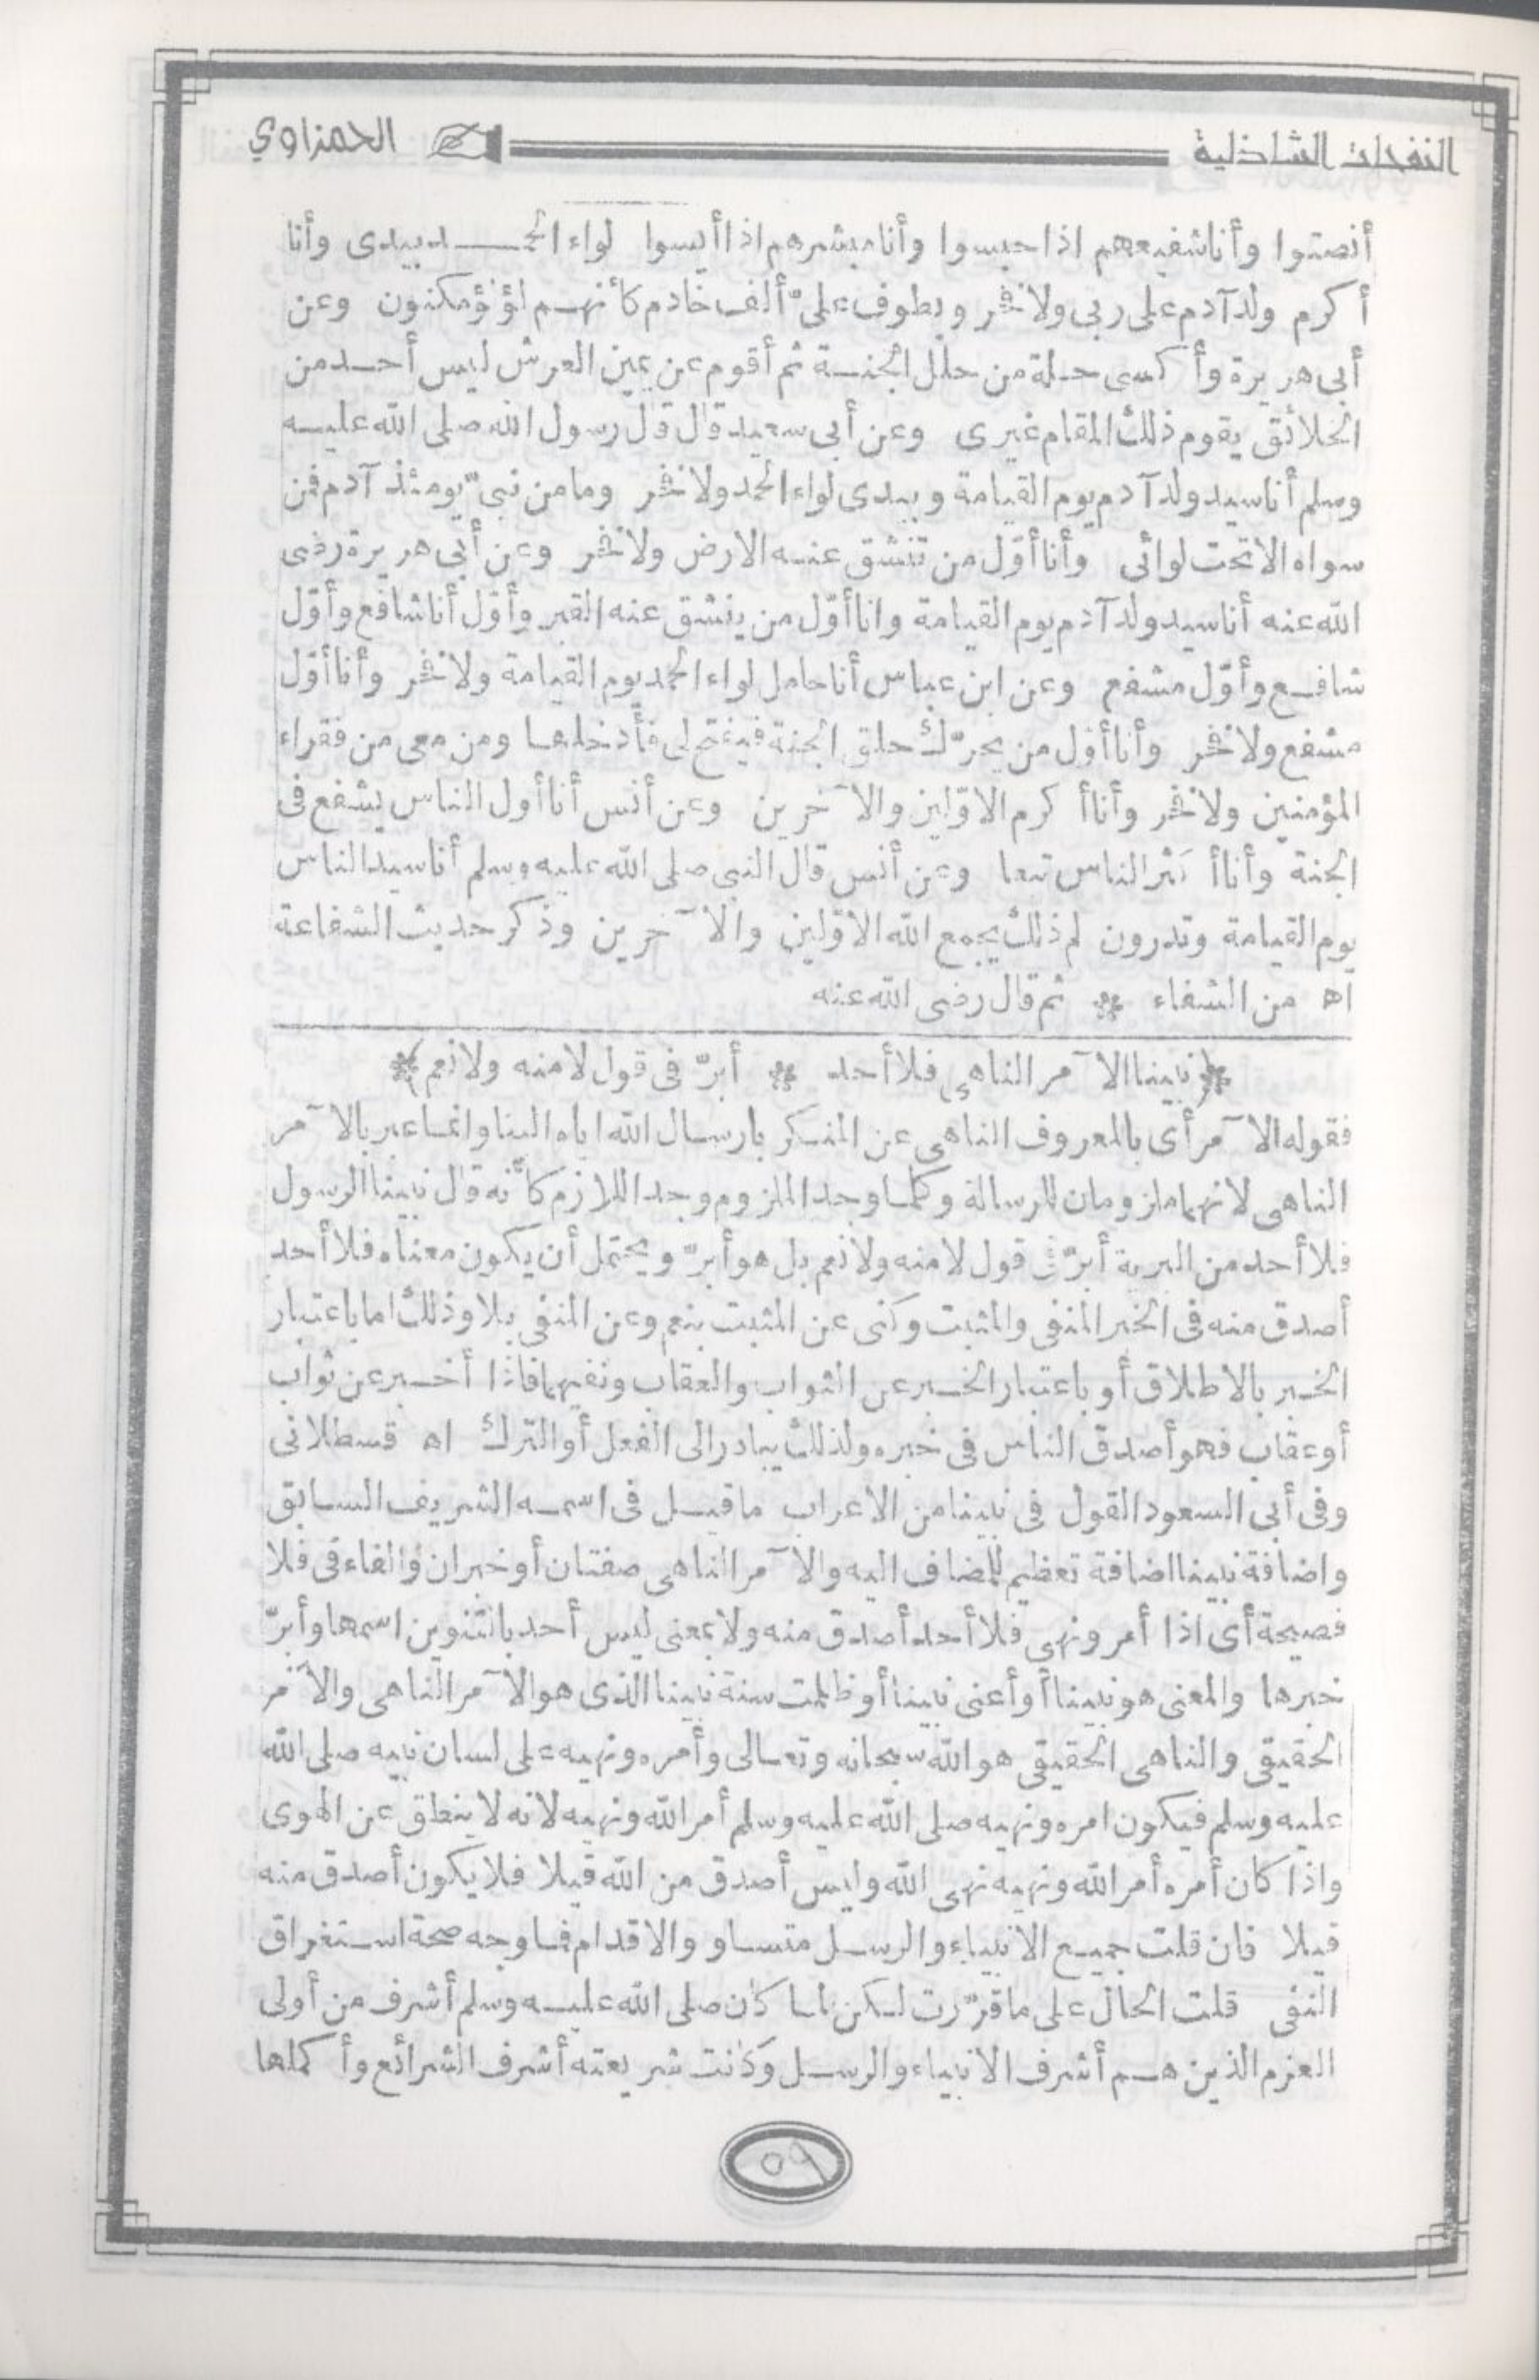 النفحات الشاذلية الحمزاوي
أنصتوا وأنا شفيعهم اذا حبسوا وأنا مبشرهم اذا أيسوا لواء الحمد بيدى وأنا
أكرم ولد آدم على ربى ولا فخر ويطوف علىّ ألف خادم كأنهم لؤلؤ مكنون وعن
أبى هريرة وأكسى حلة من حلل الجنة ثم أقوم عن يمين العرش ليس أحد من
الخلائق يقوم ذلك المقام غيرى وعن أبى سعيد قال قال رسول الله صلى الله عليه
وسلم أنا سيد ولد آدم يوم القيامة وبيدى لواء الحمد ولا فخر وما من نبىّ يومئذ آدم فمن
سواه الا تحت لوائى وأنا أوّل من تنشق عنه الارض ولا فخر وعن أبى هريرة رضى
الله عنه أنا سيد ولد آدم يوم القيامة وانا أوّل من ينشق عنه القبر وأوّل أنا شافع وأوّل
شافع وأوّل مشفع وعن ابن عباس أنا حامل لواء الحمد يوم القيامة ولا فخر وأنا أوّل
مشفع ولا فخر وأنا أوّل من يحرّك حلق الجنة فيفتح لى فأدخلها ومن معى من فقراء
المؤمنين ولا فخر وأنا أكرم الاوّلين والآخرين وعن أنس أنا أول الناس يشفع فى
الجنة وأنا أكثر الناس تبعا وعن أنس قال النبى صلى الله عليه وسلم أنا سيد الناس
يوم القيامة وتدرون لم ذلك يجمع الله الاوّلين والآخرين وذكر حديث الشفاعة
اه من الشفاء * ثم قال رضى الله عنه
﴿نبينا الآمر الناهى فلا أحد * أبرّ فى قول لا منه ولا نعم﴾
فقوله الآمر أى بالمعروف الناهى عن المنكر بارسال الله اياه الينا وانما عبر بالآمر
الناهى لانهما ملزومان للرسالة وكلما وجد الملزوم وجد اللازم كأنه قال نبينا الرسول
فلا أحد من البرية أبرّ فى قول لا منه ولا نعم بل هو أبرّ ويحتمل أن يكون معناه فلا أحد
أصدق منه فى الخبر المنفى والمثبت وكنى عن المثبت بنعم وعن المنفى بلا وذلك اما باعتبار
الخبر بالاطلاق أو باعتبار الخبر عن الثواب والعقاب ونفيهما فاذا أخبر عن ثواب
أو عقاب فهو أصدق الناس فى خبره ولذلك يبادر الى الفعل أو الترك اه قسطلانى
وفى أبى السعود القول فى نبينا من الاعراب ما قيل فى اسمه الشريف السابق
واضافة نبينا اضافة تعظيم للمضاف اليه والآمر الناهى صفتان أو خبران والفاء فى فلا
فصيحة أى اذا أمر ونهى فلا أحد أصدق منه ولا بمعنى ليس أحد بالتنوين اسمها وأبرّ
خبرها والمعنى هو نبينا أو أعنى نبينا أو ظلمت سنة نبينا الذى هو الآمر الناهى والآمر
الحقيقى والناهى الحقيقى هو الله سبحانه وتعالى وأمره ونهيه على لسان نبيه صلى الله
عليه وسلم فيكون امره ونهيه صلى الله عليه وسلم أمر الله ونهيه لانه لا ينطق عن الهوى
واذا كان أمره أمر الله ونهيه نهى الله وليس أصدق من الله قيلا فلا يكون أصدق منه
قيلا فان قلت جميع الانبياء والرسل متساو والاقدام فما وجه صحة استغراق
النفى قلت الحال على ما قرّرت لكن لما كان صلى الله عليه وسلم أشرف من أولى
العزم الذين هم أشرف الانبياء والرسل وكانت شريعته أشرف الشرائع وأكملها